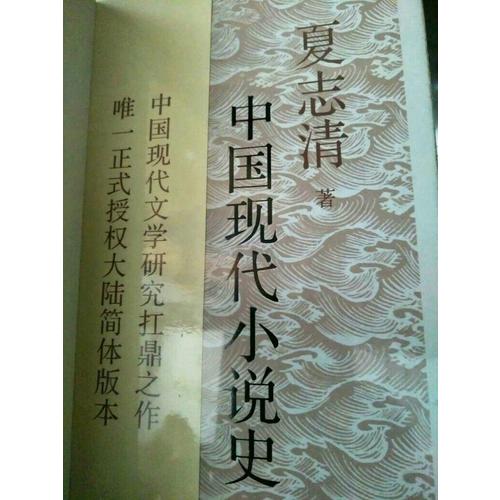 夏志清 著
中国现代小说史
中国现代文学研究扛鼎之作
唯一正式授权大陆简体版本